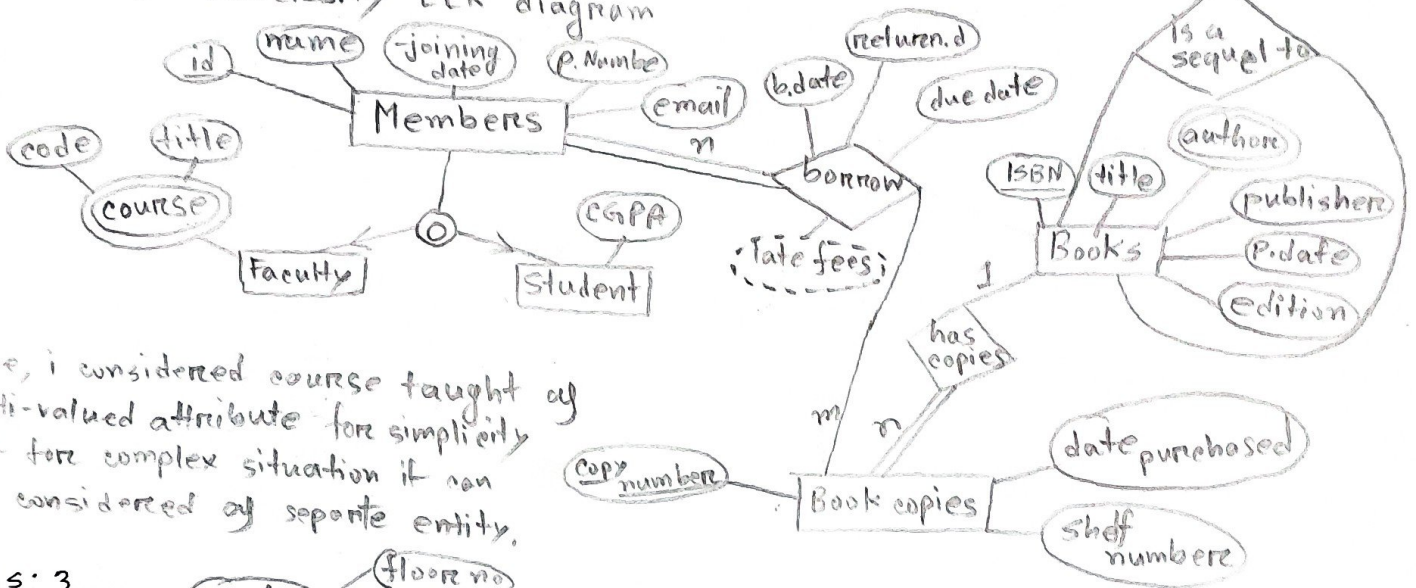 EER diagram
id
name
joining
date
P. Numbe
email
Members
code
title
course
Faculty
O
CGPA
Student
n
b.date
return.d
due date
borrow
late fees
is a
sequel to
ISBN
title
author
publisher
P.date
edition
Books
1
has
copies
n
m
copy
number
Book copies
date purchased
shelf
number
e, i considered course taught as
ti-valued attribute for simplicity
for complex situation it can
considered as separte entity.
s: 3
floor no